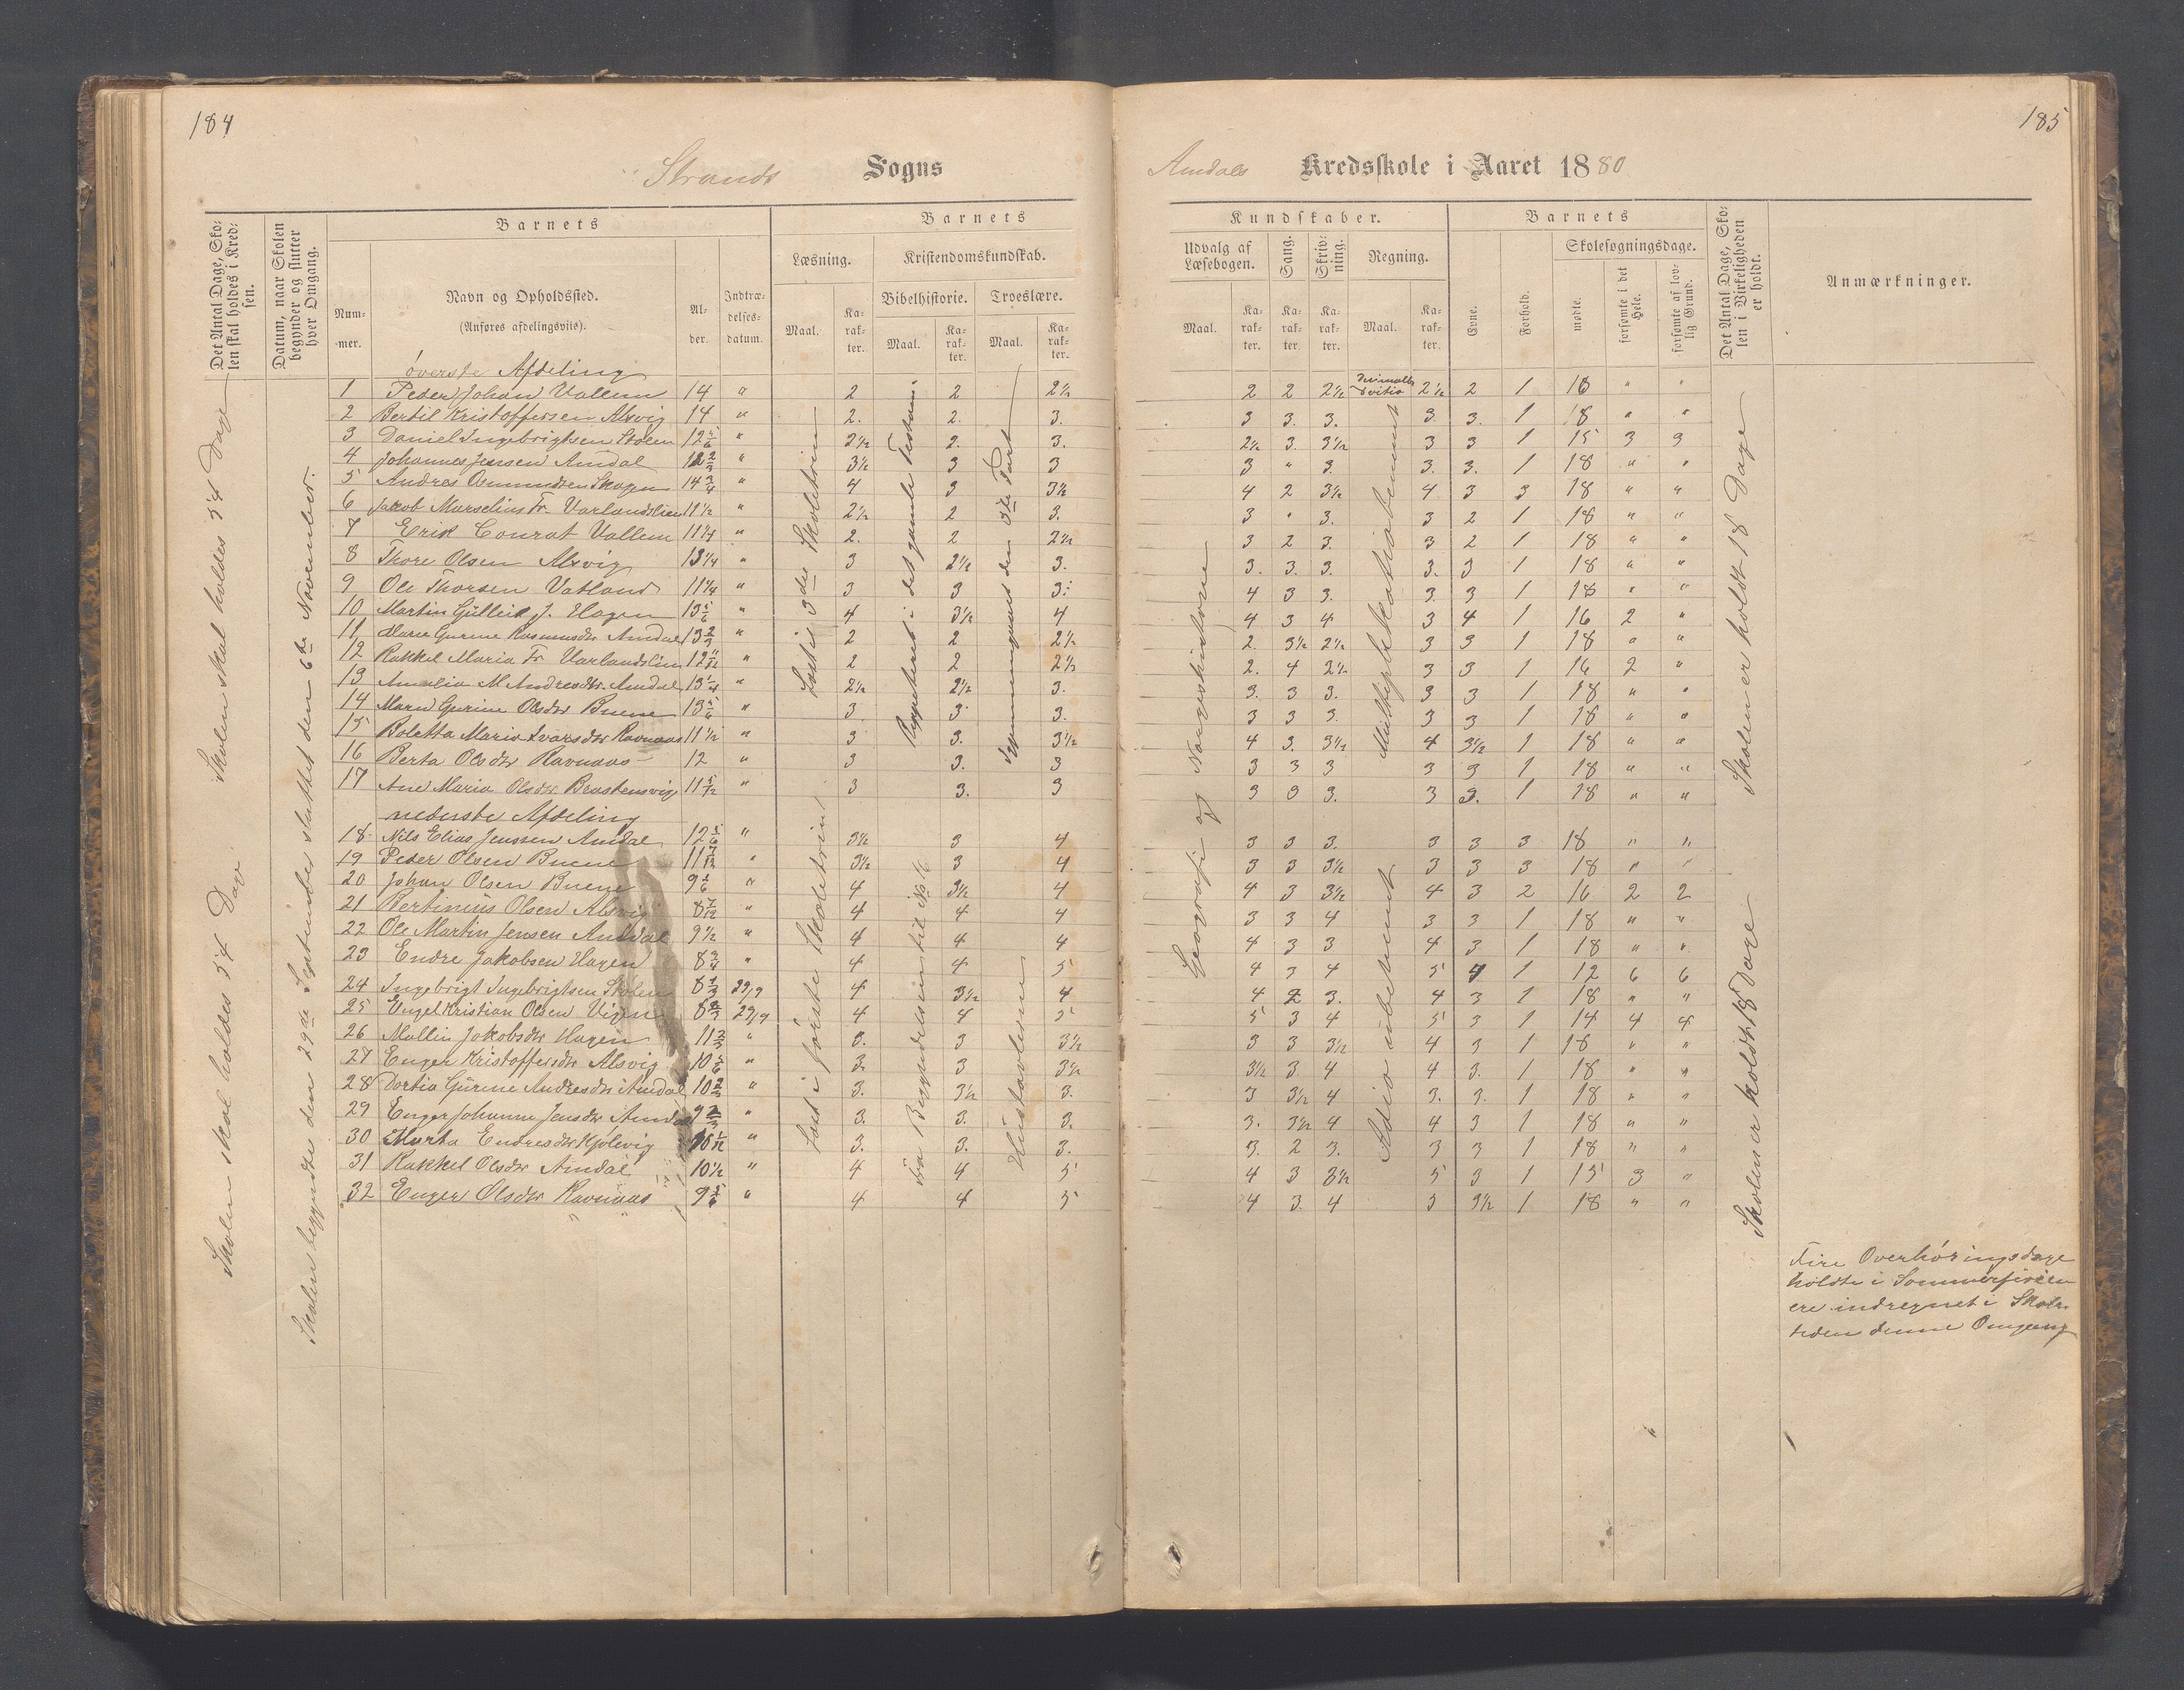 184
185
Strands Sogns
Amdals Kredsskole i Aaret 1880
Det Antal Dage, Skolen skal holdes i Kredsen.
Datum, naar Skolen begynder og slutter hver Omgang.
Barnets
Nummer.
Navn og Opholdssted.
(Anføres afdelingsviis).
Alder.
Indtrædelsesdatum.
Barnets
Læsning.
Maal.
Karakter.
Kristendomskundskab.
Bibelhistorie.
Maal.
Karakter.
Troeslære.
Maal.
Karakter.
Kundskaber.
Udvalg af Læsebogen.
Maal.
Karakter.
Sang.
Karakter.
Skrivning.
Karakter.
Regning.
Maal.
Karakter.
Barnets
Evne.
Forhold.
Skolesøgningsdage.
mødte.
forsømte i det Hele.
forsømte af lovlig Grund.
Det Antal Dage, Skolen i Virkeligheden er holdt.
Anmærkninger.
Skolen skal holdes 54 Dage
Skolen skal holdes 54 Dage
Skolen begyndte den 29de September sluttet den 6te November.
øverste Afdeling
1 Peder Johan Vallem 14 " 2 2 2½ 2 2 2½ 2½ 2 1 18 " "
2 Bertil Kristoffersen Alsvig 14 " 2. 2. 3. 3 3. 3. 3. 3. 1 18 " "
3 Daniel Ingebrigtsen Stolen 12 5/6 " 2½ 2. 3. 2½ 3. 3½ 3 3 1 15 3 3
4 Johannes Jensen Amdal 12 2/3 " 3½ 3 3 3 " 3. 3. 3. 1 18 " "
5 Andres Osmundsen Skogen 14 3/4 " 4 3 3½ 4 2 3½ 4 3 3 18 " "
6 Jakob Marselius Fr. Varlandslien 11½ " 2½ 2 3. 3 " 3. 3 2 1 18 " "
7 Erik Conrat Vallem 11¼ " 2. 2 2½ 3 2 3. 3 2 1 18 " "
8 Thore Olsen Alsvig 13¼ " 3 2½ 3. 3. 3. 3. 3. 3 1 18 " "
9 Ole Thorsen Vatland 11¼ " 3 3 3. 4 3 3. 3. 3 1 18 " "
10 Martin Gulleik J. Hagen 13 5/6 " 4 3½ 4 4 3 4 3 4 1 16 2 "
11 Maren Gurine Rasmusdtr Amdal 13 2/3 " 2 2 2½ 2. 3½ 2½ 3 3 1 18 " "
12 Rakkel Maria Fr. Varlandslien 12 11/12 " 2 2 2½ 2. 4 2½ 3 3 1 16 2 "
13 Amalia M Andresdtr. Amdal 13¼ " 2½ 2½ 3. 3. 3 3. 3 3 1 18 " "
14 Maren Gurine Olsdtr Buene 13 5/6 " 3. 3 3. 3 3 3. 3 3 1 18 " "
15 Boletta Maria Ivarsdtr Ravnaas 11½ " 3 3. 3½ 4 3. 3½ 4 3½ 1 18 " "
16 Berta Olsdtr Ravnaas 12 " 3 3. 3 3 3 3 3 3 1 18 " "
17 Ane Maria Olsdtr Brastensvig 11 5/12 " 3 3. 3 3 3 3. 3 3. 1 18 " "
nederste Afdeling
18 Nils Elias Jenssen Amdal 12 5/6 " 3½ 3 4 3 3 3. 3 3 3 18 " "
19 Peder Olsen Buene 11 7/12 " 3½ 3 4 3 3 3½ 3 3 3 18 " "
20 Johan Olsen Buene 9 1/6 " 4 3½ 4 4 3 3½ 4 3 2 16 2 2
21 Bertinius Olsen Alsvig 8 7/12 " 4 4 4 3 3 4 3 3 1 18 " "
22 Ole Martin Jensen Amdal 9½ " 4 4 4 4 3 3 4 3 1 18 " "
23 Endre Jakobsen Hagen 8 3/4 " 4 4 5 4 3 4 5 4 1 12 6 6
24 Ingebrigt Ingebrigtsen Stolen 8 1/3 29/9 4 3½ 4 4 2 3. 4 3 1 18 " "
25 Engel Kristian Olsen Vigen 8 2/3 29/9 4 4 5 5 3 4 5 3 1 14 4 4
26 Mallin Jakobsdtr Hagen 11 2/3 " 3. 3 3½ 3 3 3½ 4 3 1 18 " "
27 Enger Kristoffersdtr Alsvig 10 5/6 " 3. 3 3½ 3½ 3. 4 4 3. 1 18 " "
28 Dortia Gurine Andresdtr Amdal 10 2/3 " 3. 3½ 3. 3 3½ 4 3. 3. 1 18 " "
29 Enger Johanne Jensdtr Amdal 9 2/3 " 3. 3. 3. 3. 3½ 4 4 3 1 18 " "
30 Marta Endresdtr Golevig 10 1/12 " 3. 3. 3. 3. 2 3. 3 3 1 18 " "
31 Rakkel Olsdtr Amdal 10½ " 4 4 5 4 3 3½ 5 3 1 15 3 "
32 Enger Olsdtr Ravnaas 9 5/6 " 4 4 5 4 3. 4 3 3½ 1 18 " "
Læst i 3die Skoletrin
Reppeteret i det gamle Testam.
den 3die Part
Geografi og Norgeshistorie
Multiplikation ubenævnt
Læst i første Skoletrin
fra Begyndelsen til No 16
Hustavlerne
Adio ubenævnt
Skolen er holdt 18 Dage
Skolen er holdt 18 Dage
Fire Overhøringsdage
holdte i Sommerferien
ere indregnet i Skole-
tiden denne Omgang